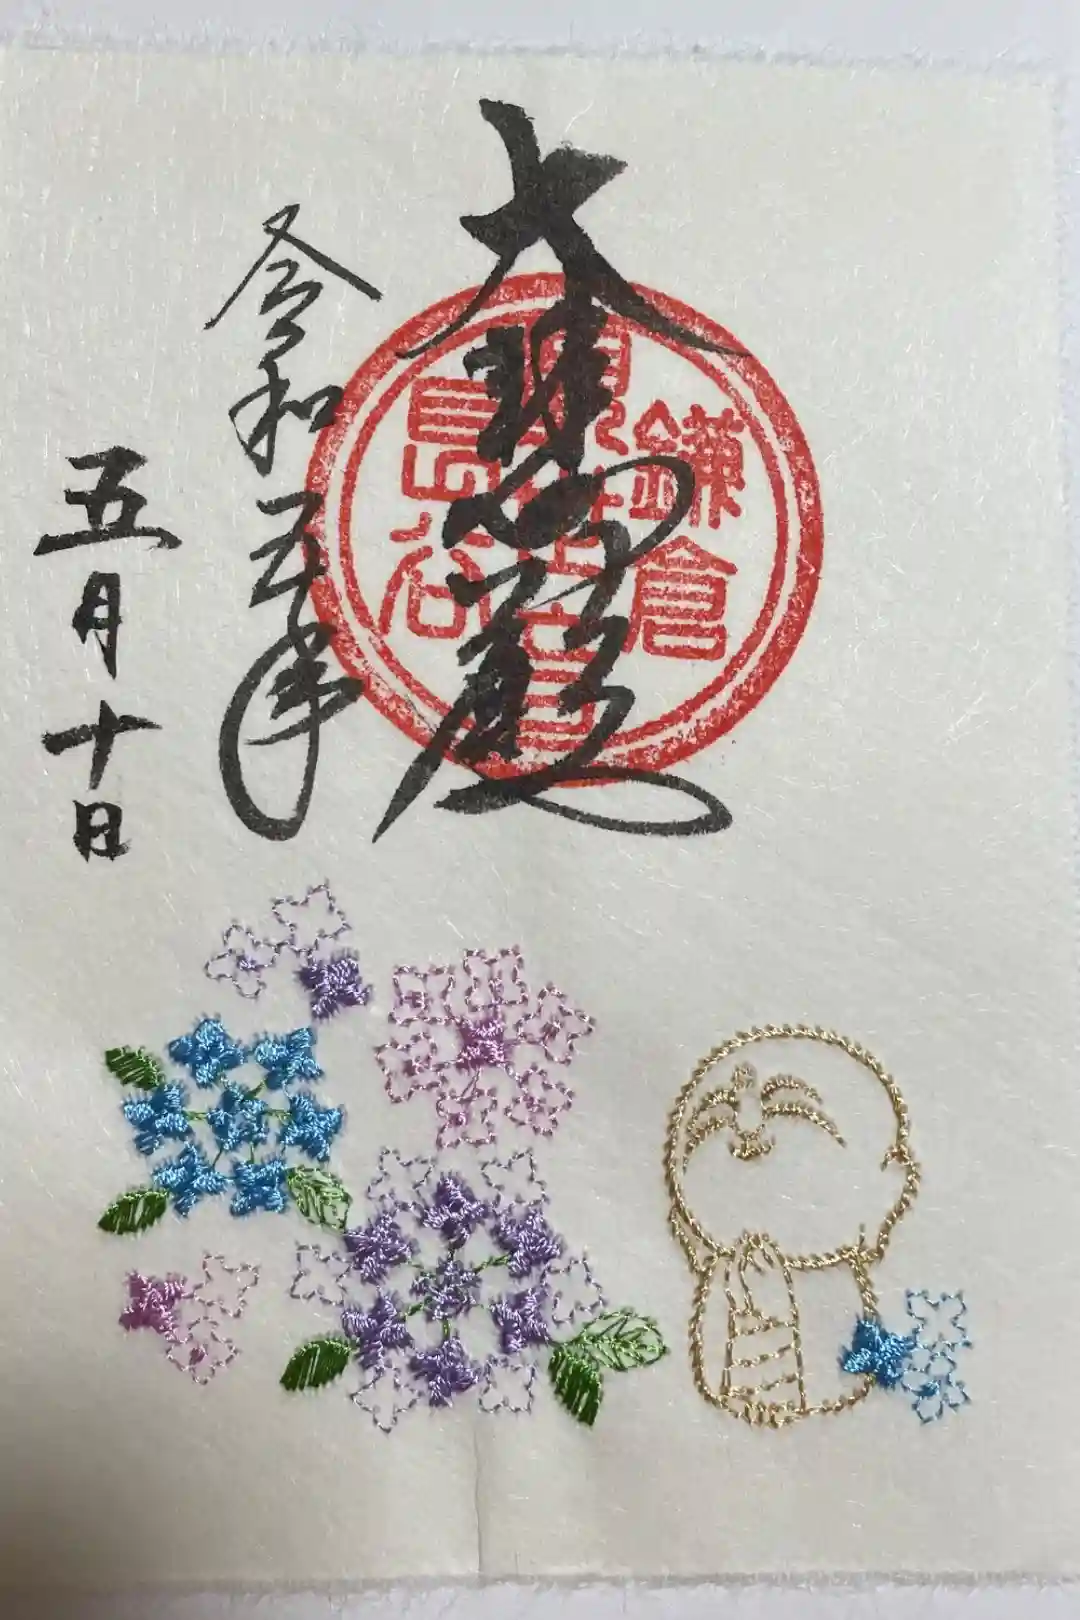 大悲殿
鎌倉
観世音
長谷
令和五年
五月十日